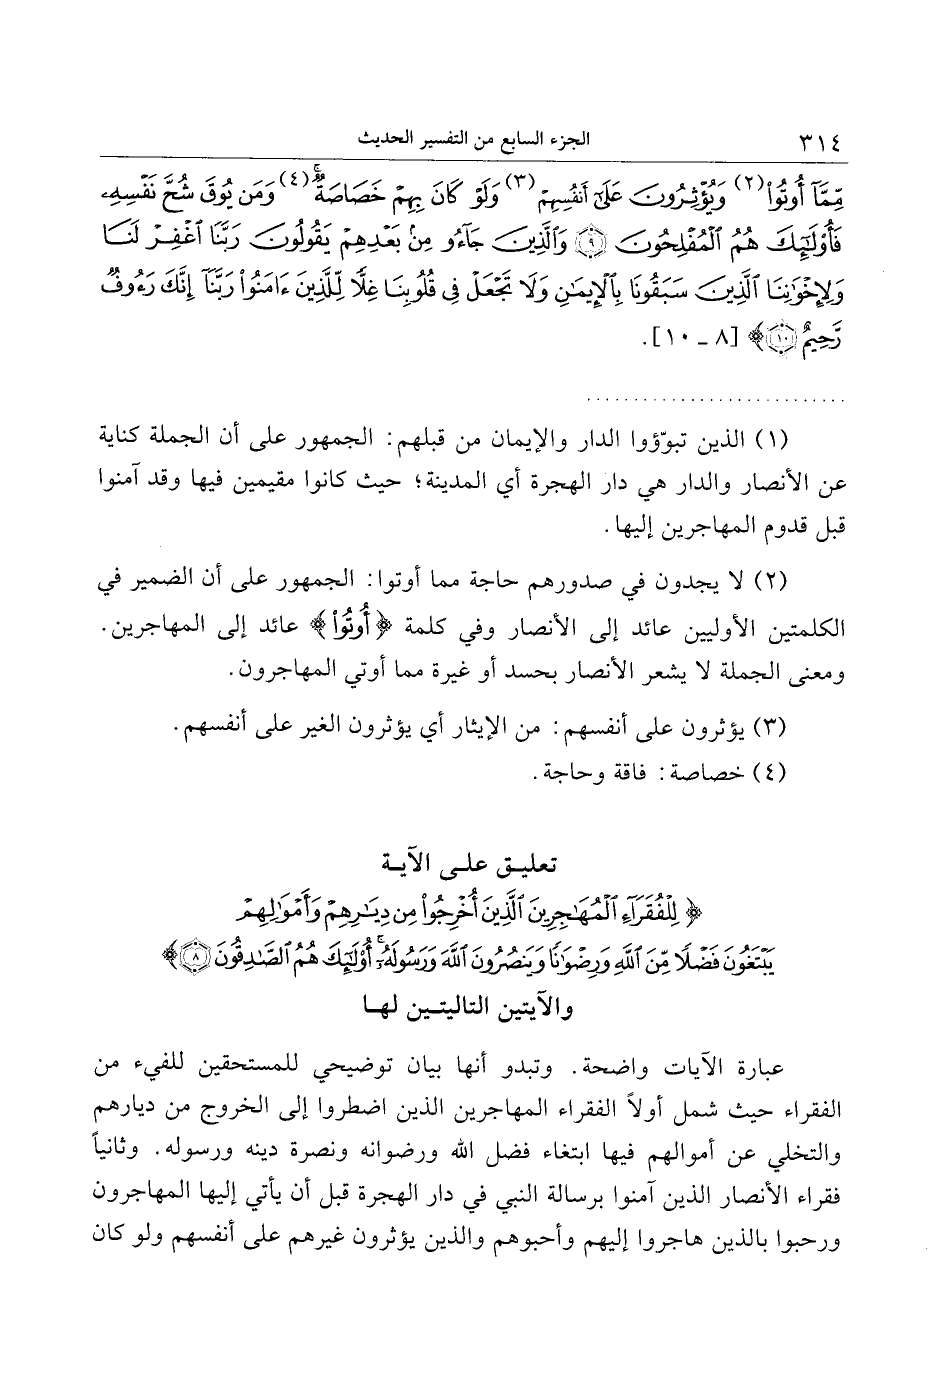 ٣١٤ الجزء السابع من التفسير الحديث
مِّمَّآ أُوتُواْ (٢) وَيُؤْثِرُونَ عَلَىٰٓ أَنفُسِهِمْ (٣) وَلَوْ كَانَ بِهِمْ خَصَاصَةٌۚ (٤) وَمَن يُوقَ شُحَّ نَفْسِهِۦ
فَأُوْلَٰٓئِكَ هُمُ ٱلْمُفْلِحُونَ ۝٩ وَٱلَّذِينَ جَآءُو مِنۢ بَعْدِهِمْ يَقُولُونَ رَبَّنَا ٱغْفِرْ لَنَا
وَلِإِخْوَٰنِنَا ٱلَّذِينَ سَبَقُونَا بِٱلْإِيمَٰنِ وَلَا تَجْعَلْ فِى قُلُوبِنَا غِلًّا لِّلَّذِينَ ءَامَنُواْ رَبَّنَآ إِنَّكَ رَءُوفٌ
رَّحِيمٌ ۝١٠﴾ [٨ ـ ١٠].
...........................
(١) الذين تبوّؤوا الدار والإيمان من قبلهم: الجمهور على أن الجملة كناية
عن الأنصار والدار هي دار الهجرة أي المدينة؛ حيث كانوا مقيمين فيها وقد آمنوا
قبل قدوم المهاجرين إليها.
(٢) لا يجدون في صدورهم حاجة مما أوتوا: الجمهور على أن الضمير في
الكلمتين الأوليين عائد إلى الأنصار وفي كلمة ﴿أُوتُواْ﴾ عائد إلى المهاجرين.
ومعنى الجملة لا يشعر الأنصار بحسد أو غيرة مما أوتي المهاجرون.
(٣) يؤثرون على أنفسهم: من الإيثار أي يؤثرون الغير على أنفسهم.
(٤) خصاصة: فاقة وحاجة.
تعليق على الآية
﴿لِلْفُقَرَآءِ ٱلْمُهَٰجِرِينَ ٱلَّذِينَ أُخْرِجُواْ مِن دِيَٰرِهِمْ وَأَمْوَٰلِهِمْ
يَبْتَغُونَ فَضْلًا مِّنَ ٱللَّهِ وَرِضْوَٰنًا وَيَنصُرُونَ ٱللَّهَ وَرَسُولَهُۥٓۚ أُوْلَٰٓئِكَ هُمُ ٱلصَّٰدِقُونَ ۝٨﴾
والآيتين التاليتين لها
عبارة الآيات واضحة. وتبدو أنها بيان توضيحي للمستحقين للفيء من
الفقراء حيث شمل أولاً الفقراء المهاجرين الذين اضطروا إلى الخروج من ديارهم
والتخلي عن أموالهم فيها ابتغاء فضل الله ورضوانه ونصرة دينه ورسوله. وثانياً
فقراء الأنصار الذين آمنوا برسالة النبي في دار الهجرة قبل أن يأتي إليها المهاجرون
ورحبوا بالذين هاجروا إليهم وأحبوهم والذين يؤثرون غيرهم على أنفسهم ولو كان